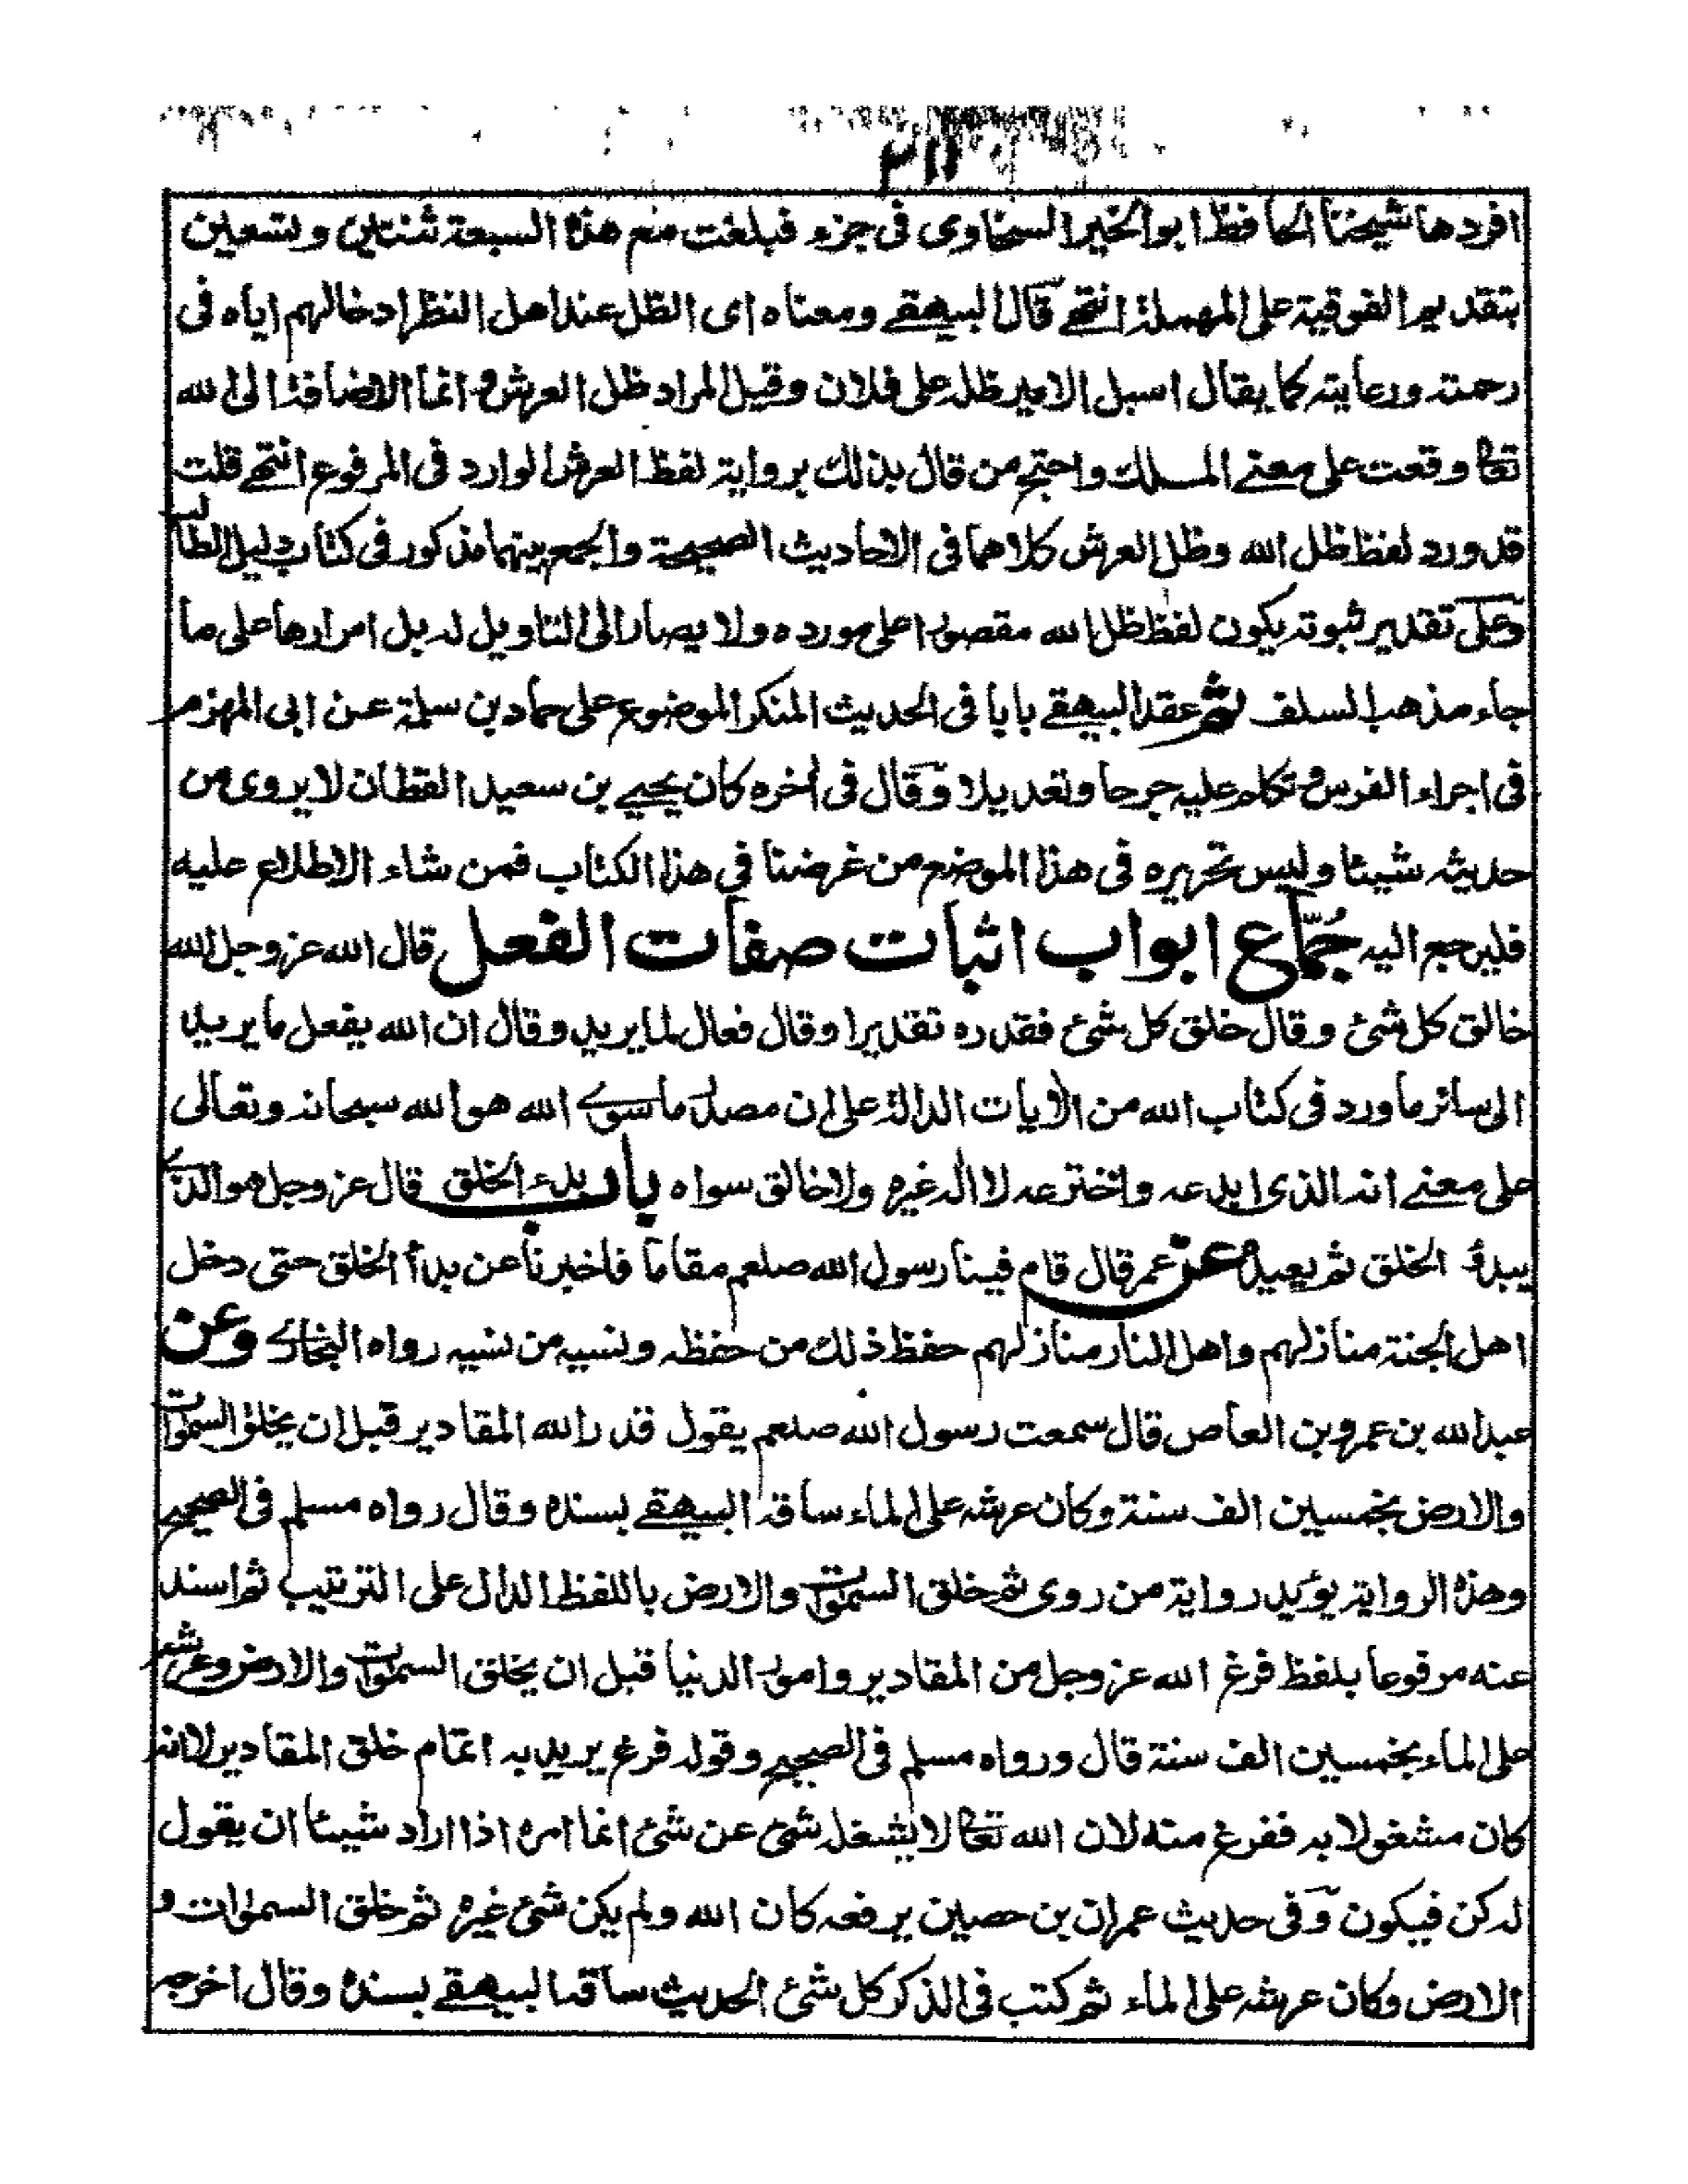 افردها شيخنا الحافظ ابو الخير السخاوى فى جزء فبلغت مع هذه السبعة ثنتين وتسعين
بتقديم الفوقية على المهملة انتهى قال البيهقے ومعناه اى الظل عند اهل النظر ادخالهم اياه فى
رحمته ورعايته كما يقال اسبل الامير ظله على فلان وقيل المراد ظل العرش وانما الاضافة الى الله
تعا وقعت على معنے الملك واحتج من قال بذلك برواية لفظ العرش الوارد فى المرفوع انتهے قلت
قد ورد لفظ ظل الله وظل العرش كلاهما فى الاحاديث الصحيحة والجمع بينهما مذكور فى كتاب دليل الطالب
وعلى تقدير ثبوته يكون لفظ ظل الله مقصورا على مورده ولا يصار الى التاويل له بل امرارها على ما
جاء مذهب السلف ثم عقد البيهقے بابا فى الحديث المنكر الموضوع على حماد بن سلمة عن ابى المهزم
فى اجراء الفرس وتكلم عليه جرحا وتعديلا وقال فى أخره كان يحيے بن سعيد القطان لا يروى من
حديثه شيئا وليس تحريره فى هذا الموضع من غرضنا في هذا الكتاب فمن شاء الاطلاع عليه
فليرجع اليه جُمّاع ابواب اثبات صفات الفعل قال الله عز وجل الله
خالق كل شئ وقال خلق كل شئ فقدره تقديرا وقال فعال لما يريد وقال ان الله يفعل ما يريد
الى سائر ما ورد فى كتاب الله من الأيات الدالة على ان مصدر ما سوے الله هو الله سبحانه وتعالى
على معنے انه الذى ابدعه واخترعه لا اله غيره ولا خالق سواه باب بدء الخلق قال عز وجل هو الذے
يبدؤ الخلق ثم يعيده عن عمر قال قام فينا رسول الله صلعم مقاما فاخبرنا عن بدأ الخلق حتى دخل
اهل الجنة منازلهم واهل النار منازلهم حفظ ذلك من حفظه ونسيه من نسيه رواه البخارے وعن
عبد الله بن عمرو بن العاص قال سمعت رسول الله صلعم يقول قدر الله المقادير قبل ان يخلق السموات
والارض بخمسين الف سنة وكان عرشه على الماء ساقه البيهقے بسنده وقال رواه مسلم فى الصحيح
وهذه الرواية يؤيد رواية من روى ثم خلق السموات والارض باللفظ الدال على الترتيب ثم اسند
عنه مرفوعا بلفظ فرغ الله عز وجل من المقادير وامور الدنيا قبل ان يخلق السموات والارض وعرشه
على الماء بخمسين الف سنة قال ورواه مسلم فى الصحيح وقوله فرغ يريد به اتمام خلق المقادير لا انه
كان مشغولا به ففرغ منه لان الله تعا لا يشغله شئ عن شئ انما امره اذا اراد شيئا ان يقول
له كن فيكون وفى حديث عمران بن حصين يرفعه كان الله ولم يكن شئ غيره ثم خلق السموات و
الارض وكان عرشه على الماء ثم كتب فى الذكر كل شئ الحديث ساقه البيهقے بسنده وقال اخرجه